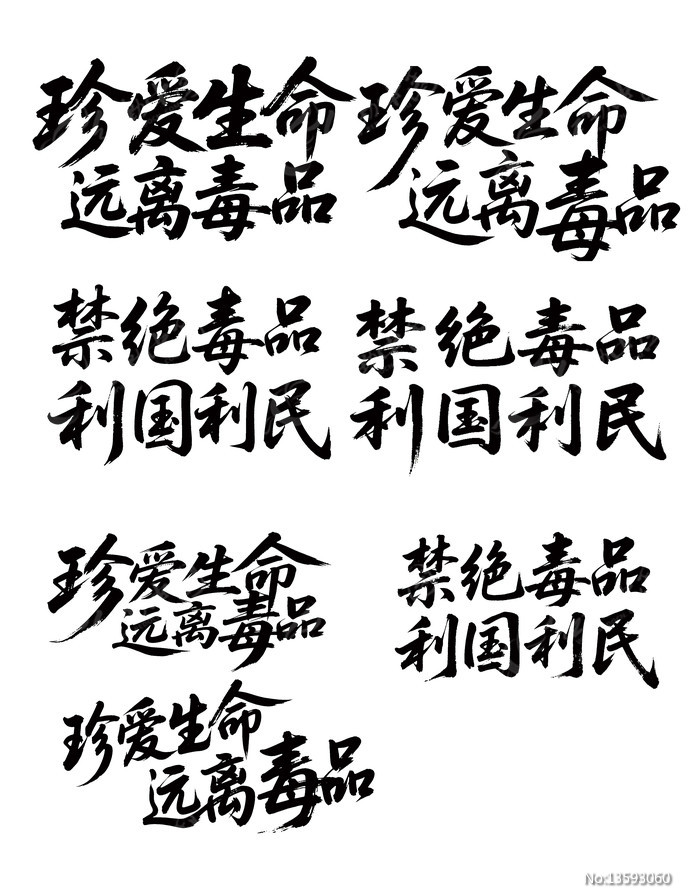 珍爱生命
远离毒品
珍爱生命
远离毒品
禁绝毒品
利国利民
禁绝毒品
利国利民
珍爱生命
远离毒品
禁绝毒品
利国利民
珍爱生命
远离毒品
No:13593060